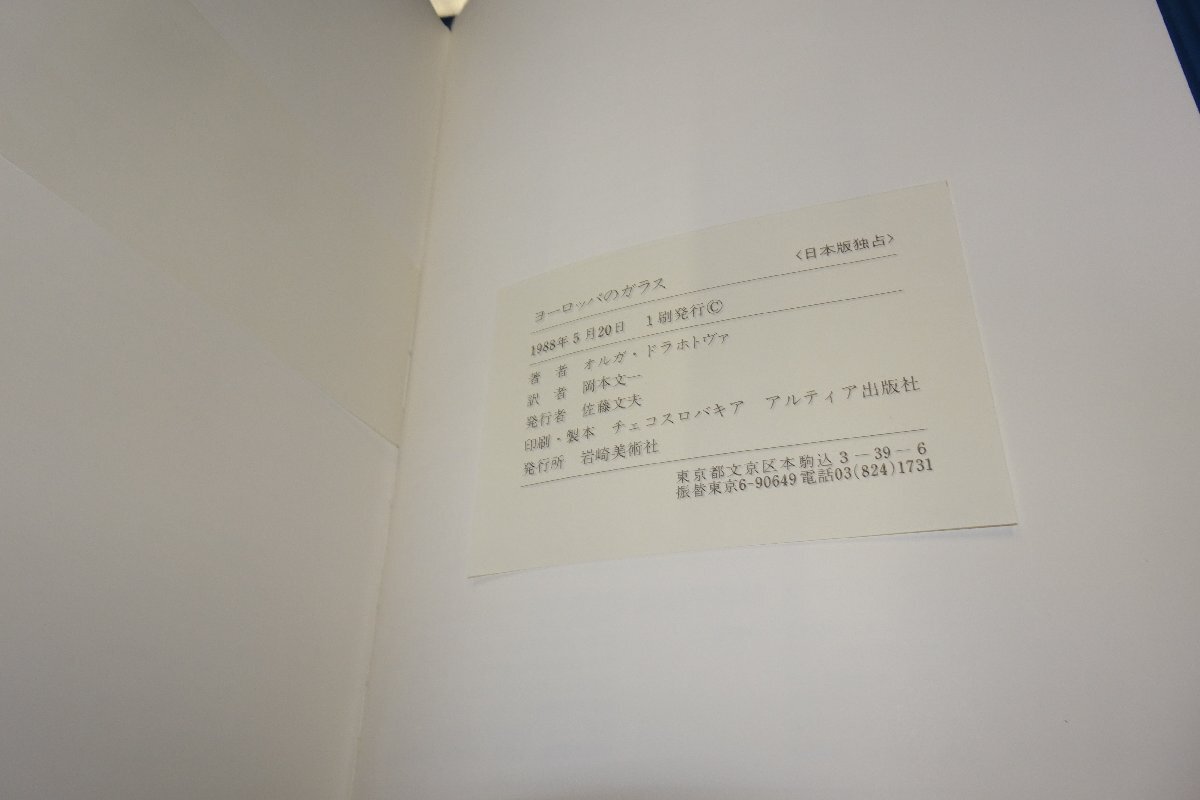 ヨーロッパのガラス 〈日本版独占〉
1988年5月20日 1刷発行©
著者 オルガ・ドラホトヴァ
訳者 岡本文一
発行者 佐藤文夫
印刷・製本 チェコスロバキア アルティア出版社
発行所 岩崎美術社
東京都文京区本駒込3-39-6
振替東京6-90649電話03(824)1731